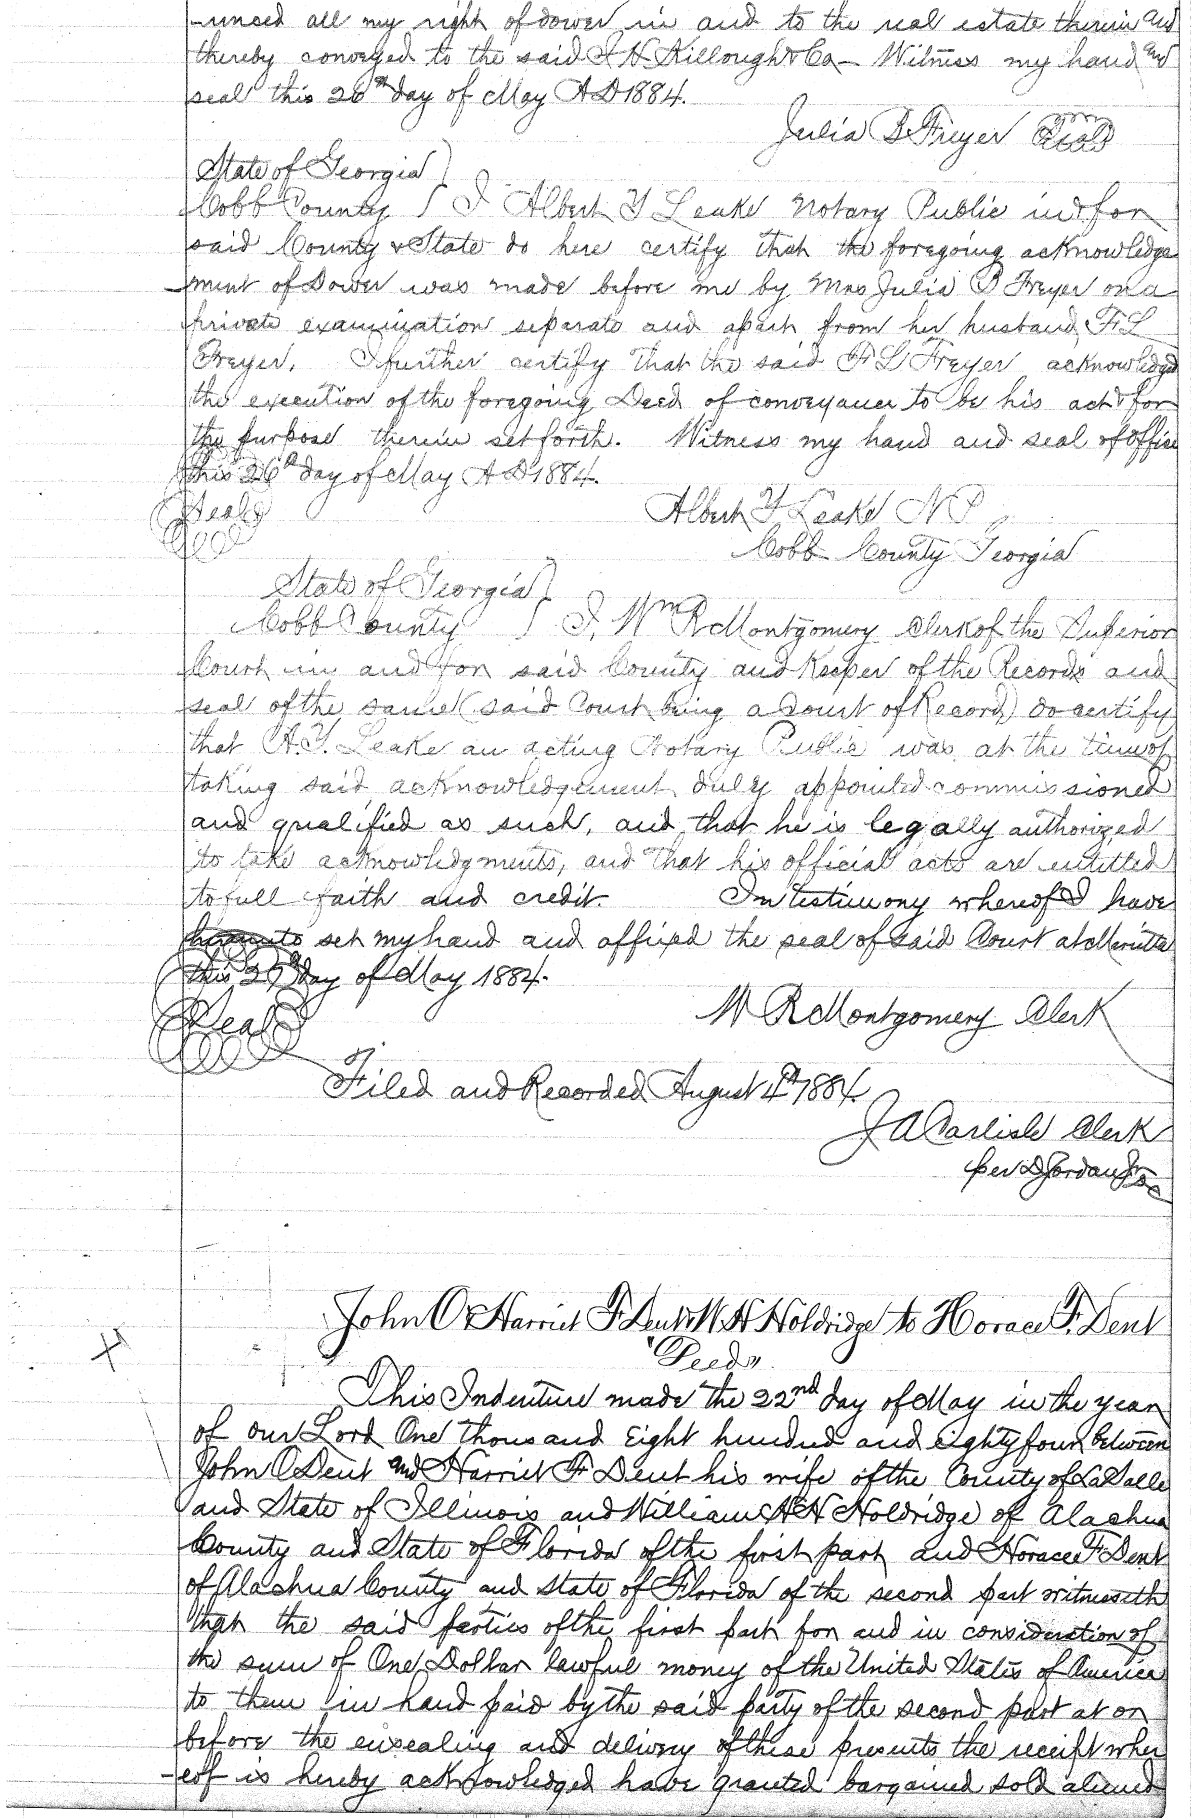 -unced all my right of dower in and to the real estate therein and
thereby conveyed to the said J H Killough & Co - Witness my hand and
seal this 26th day of May A D 1884.
Julia B Freyer Seal
State of Georgia
Cobb County } I Albert Y Leake Notary Public in & for
said County & State do here certify that the foregoing acknowledge
-ment of Dower was made before me by Mrs Julia B Freyer on a
private examination separate and apart from her husband F L
Freyer. I further certify that the said F L Freyer acknowledged
the execution of the foregoing Deed of conveyance to be his act & for
the purpose therein set forth. Witness my hand and seal of office
this 26th day of May A D 1884.
Seal Albert Y Leake N P
Cobb County Georgia
State of Georgia }
Cobb County } I, Wm R Montgomery Clerk of the Superior
Court in and for said County and Keeper of the Records and
seal of the same (said Court being a Court of Record) do certify
that A.Y. Leake an acting Notary Public was at the time of
taking said acknowledgement duly appointed commissioned
and qualified as such, and that he is legally authorized
to take acknowledgments, and that his official acts are entitled
to full faith and credit. In testimony whereof I have
hereunto set my hand and affixed the seal of said Court at Marietta
this 27th day of May 1884.
Seal W R Montgomery Clerk
Filed and Recorded August 4th 1884.
J A Carlisle Clerk
per D Jordan Jr DC
John O & Harriet F Dent & W H Holdridge to Horace F. Dent
"Deed"
This Indenture made the 22nd day of May in the year
of our Lord One thousand Eight hundred and Eighty four between
John O Dent and Harriet F Dent his wife of the County of LaSalle
and State of Illinois and William H H Holdridge of Alachua
County and State of Florida of the first part and Horace F Dent
of Alachua County and State of Florida of the second part witnesseth
that the said parties of the first part for and in consideration of
the sum of One Dollar lawful money of the United States of America
to them in hand paid by the said party of the second part at or
before the ensealing and delivery of these presents the receipt wher
-eof is hereby acknowledged have granted bargained sold aliened